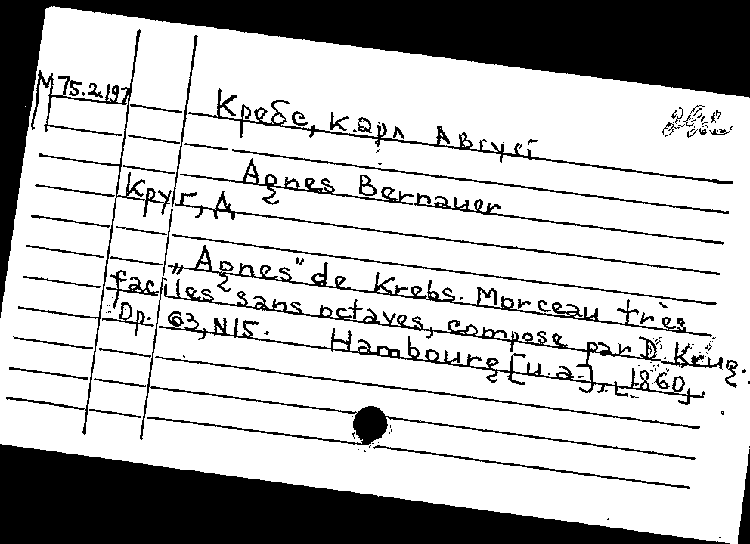 М 75.2.197
Кребс, Карл Август
Agnes Bernauer
Круг, Д.
„Agnes" de Krebs. Morceau très
faciles sans octaves, compose par D. Krug.
Op. 63, N15. Hambourg [u.a.], [1860]